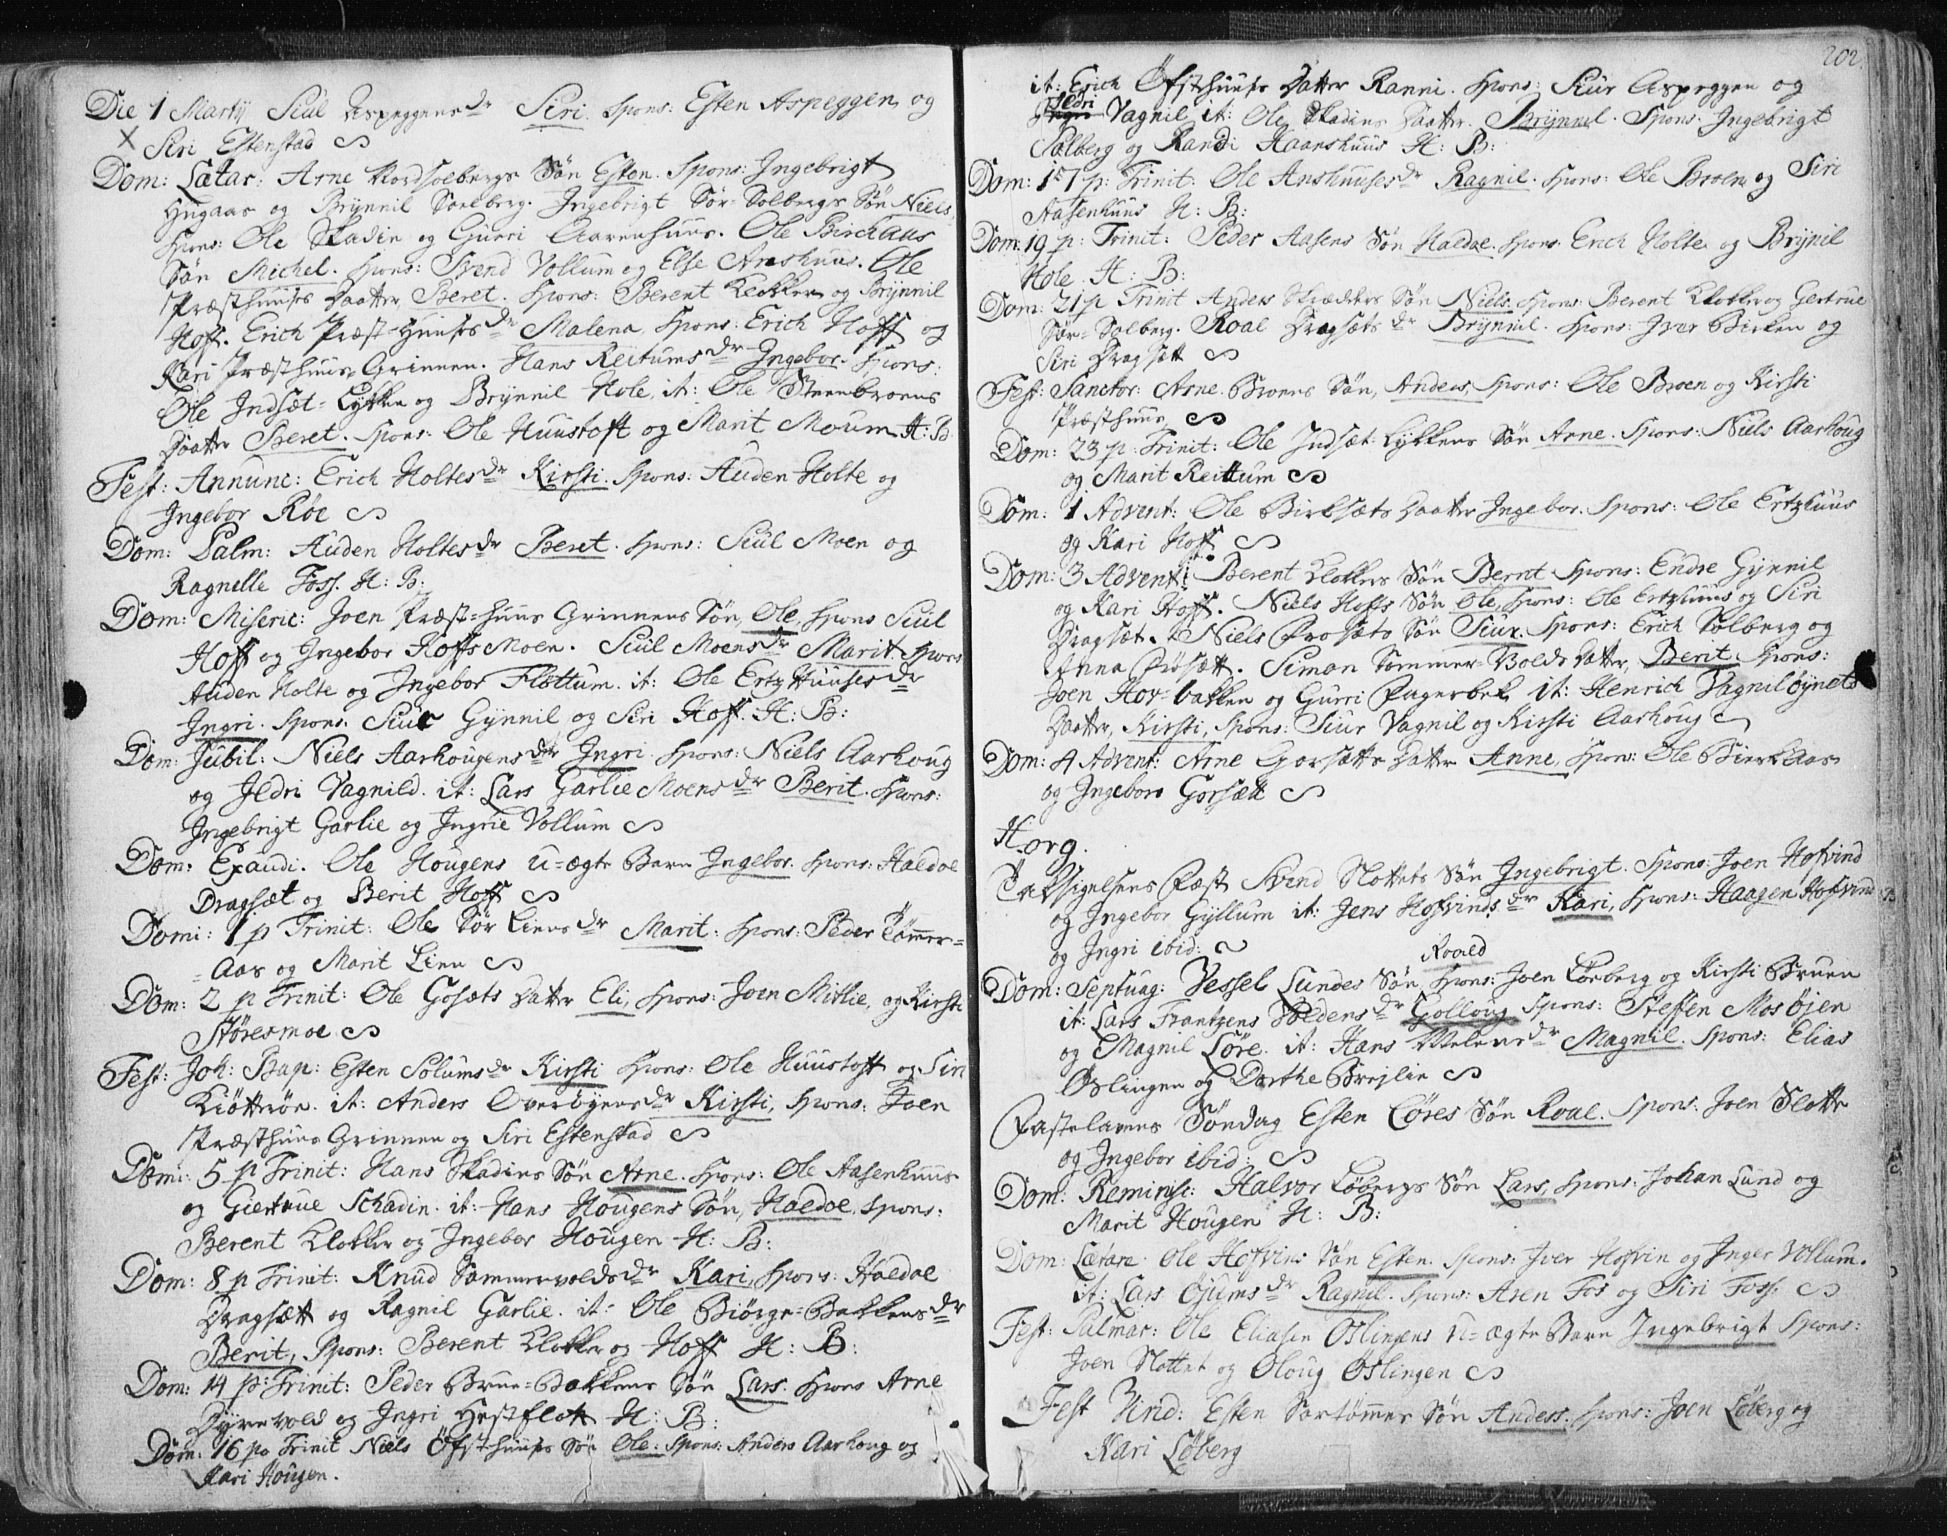 Die 1 Martij Siul Aspeggens dr Siri. Spons: Esten Aspeggen og
Siri Estenstad
Dom: Lætar: Arne Nordsolbergs Søn Esten. Spons: Ingebrigt
Hugaas og Brynnil Soelberg. Ingebrigt Sør-Solbergs Søn Niels,
Spons: Ole Skadin og Gurri Aarenhuus. Ole Birchlaus
Søn Michel. Spons: Svend Vollum og Else Anshuus. Ole
Præsthuuses Daatter Beret. Spons: Berent Klokker og Brynnil
Hoff. Erich Præst-Huuses dr Malena, Spons: Erich Hoff og
Kari Præsthuus Grinnen. Hans Reitums dr Ingebor. Spons:
Ole Indsæt-Lykken og Brynnil Hole, it: Ole Steenbroens
Daatter Beret. Spons: Ole Huustoft og Marit Moum H: B:
Fest: Annunc: Erich Holtes dr Kirsti. Spons: Auden Holte og
Ingebor Røe
Dom: Palm: Auden Holtes dr Beret. Spons: Siul Moen og
Ragnille Foss. H: B:
Dom: Miseric: Joen Præst-huus Grinnens Søn, Ole, Spons Siul
Hoff og Ingebor Hoffs Moen. Siul Moens dr Marit. Spons
Auden Holte og Ingebor Flottum. it: Ole Ertzhuuses dr
Ingri. Spons: Siur Gynnil og Siri Hoff. H: B:
Dom: Jubil: Niels Aarhougens dr Ingri. Spons: Niels Aarhoug
og Jldri Vagnild. it: Lars Garlie Moens dr Berit. Spons:
Ingebrigt Garlie og Ingrie Vollum
Dom: Exaudi. Ole Hougens u-ægte Barn Ingebor. Spons: Haldoe
Dragsæt og Berit Hoff
Domi: 1 p Trinit: Ole Sør Liens dr Marit. Spons: Peder Tømmer-
-Aas og Marit Lien
Dom: 2 p Trinit: Ole Gosæts Datter Eli, Spons: Joen Mitlie, og Kirsti
Støresmoe
Fest: Joh: Bap: Esten Solums dr Kirsti Spons: Ole Huustoft og Siri
Kiøttrøe. it: Anders Overøyens dr Kirsti, Spons: Joen
Præsthuus Grinnen og Siri Estenstad
Dom: 5 p Trinit: Hans Skadins Søn Arne. Spons: Ole Aasenhuus
og Giertrue Schadin. it: Hans Hougens Søn, Haldoe, Spons:
Berent Klokker og Ingebor Hougen H: B:
Dom: 8 p Trinit: Knud Sommervolds dr Kari, Spons: Haldoe
Dragsætt og Ragnil Garlie. it: Ole Biørge-Bakkens dr
Berit, Spons: Berent Klokker og Hoff H: B:
Dom: 14 p Trinit: Peder Brue-Bakkens Søn Lars. Spons Arne
Dyrevold og Ingri Hestflott H: B:
Dom: 16 po Trinit Niels Øfsthuuses Søn Ole: Spons: Anders Aarhoug og
Kari Hougen.
202
it: Erich Øfsthuuses Datter Ranni. Spons: Siur Aspeggen og
Jldri
Vagnil it: Ole Skadins Daatter Brynnil. Spons: Ingebrigt
Solberg og Randi Haanshuus H: B:
Dom: 17 p: Trinit: Ole Anshuuses dr Ragnil. Spons: Ole Broen og Siri
Aasenhuus H: B:
Dom: 19 p: Trinit: Peder Aasens Søn Haldoe. Spons. Erich Holte og Brynil
Hole H: B:
Dom: 21 p Trinit Anders Skræders Søn Niels. Spons: Berent Klokker og Gertrue
Sør-Solberg. Roal Dragsæts dr Brynnil. Spons: Iver Birken og
Siri Dragsætt
Fest: Sanctor: Arne Broens Søn, Anders, Spons: Ole Broen og Kirsti
Præsthuus
Dom: 23 p: Trinit: Ole Indsæt Lykkens Søn Arne. Spons: Niels Aarhoug
og Marit Reittum
Dom: 1 Advent: Ole Birksæts Daatter Ingebor. Spons: Ole Ertzhuus
og Kari Hoff
Dom: 3 Advent: Berent Klokkers Søn Bernt Spons: Endre Gynnil
og Kari Hoff. Niels Hoffs Søn Ole, Spons: Ole Ertzhuus og Siri
Dragsæt. Niels Frosæts Søn Siur. Spons: Erich Solberg og
Anna Frøsætt. Simon Sommer-Volds Datter, Berit. Spons:
Joen Hov-bakken og Gurri Fagerbek it: Henrich Vagniløynets
Daatter, Kirsti, Spons: Siur Vagnil og Kirsti Aarhoug
Dom: 4 Advent: Arne Gorsætts Datter Anne, Spons: Ole Bierklaas
og Ingebor Gorsætt
Horg.
Taksigelsens Fæst Svend Slottets Søn Ingebrigt. Spons: Joen Hofvind
og Ingebor Gyllum it: Jens Hofvinds dr Kari, Spons: Haagen Hofvind
og Ingri ibid:
Roald
Dom: Septuag: Vessel Lundes Søn, Spons: Joen Løeberg og Kirsti Bruen
it: Lars Frantzens Voldens dr Golloug Spons: Steffen Mosøjen
og Magnil Løre. it: Hans Melens dr Magnil. Spons: Elias
Øslingen og Dorthe Brejlie
Fastelavens Søndag Esten Løres Søn Roal. Spons: Joen Slotte
og Ingebor ibid:
Dom: Reminisc: Halvor Løbergs Søn Lars, Spons: Johan Lund og
Marit Hougen H: B:
Dom: Lætare Ole Hofvins Søn Esten. Spons: Iver Hofvin og Inger Vollum.
it: Lars Øjums dr Ragnil. Spons: Aren Fos og Siri Foss.
Fest: Palmar: Ole Eliasen Øslingens u-ægte Barn Ingebrigt Spons:
Joen Slottet og Oloug Øslingen
Fest Virid: Esten Sortømmes Søn Anders. Spons: Joen Løberg og
Kari Løberg